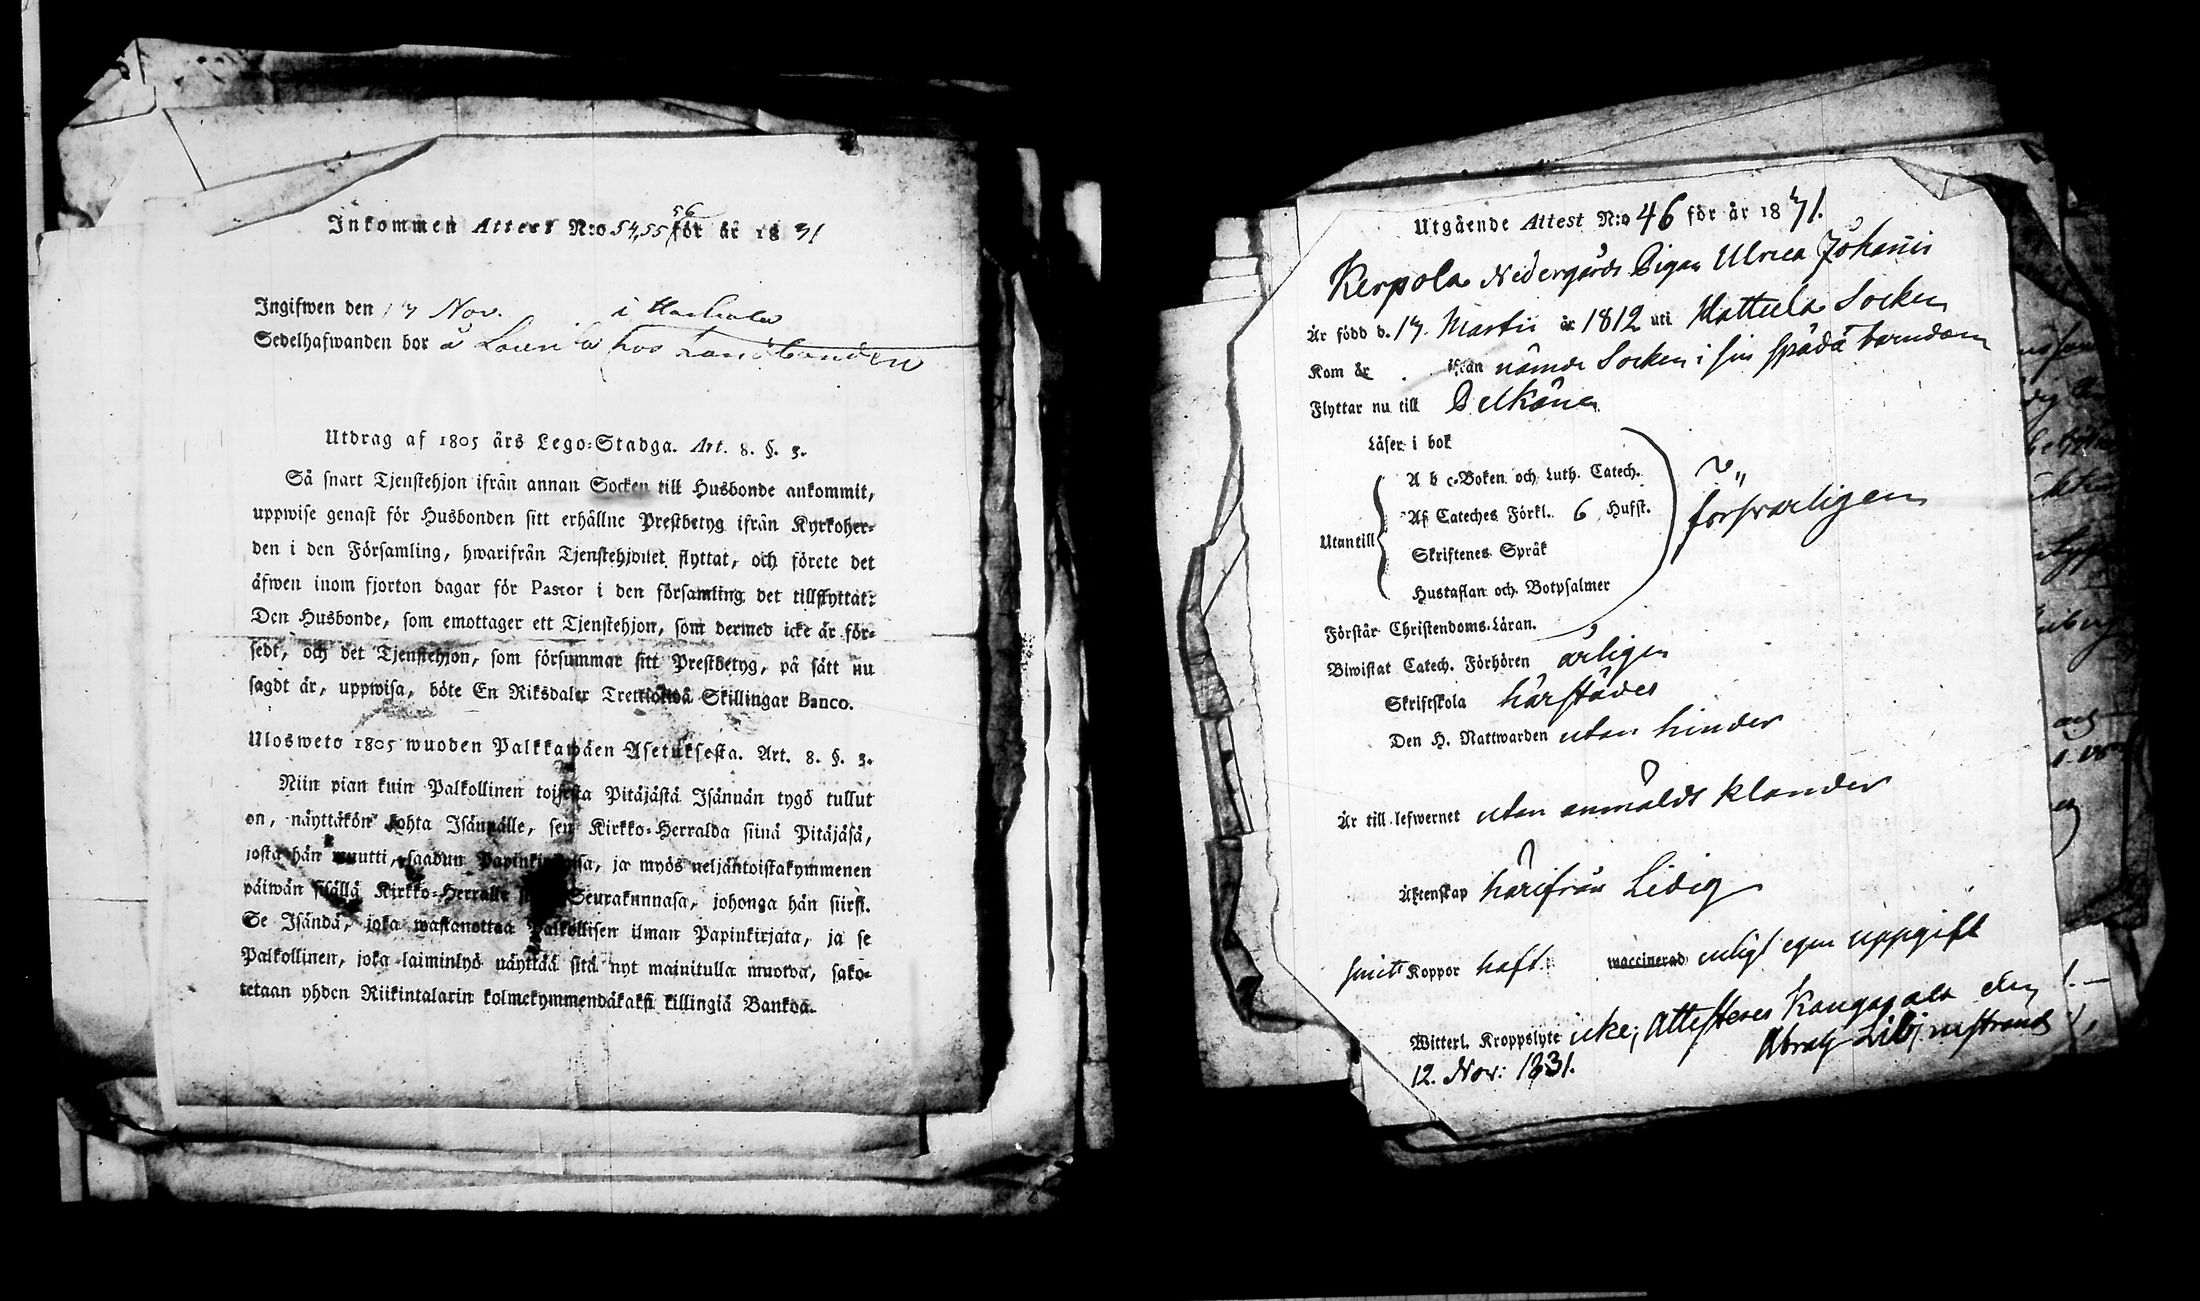 Inkommen Attest N:o 54,55 56 för år 1831
Ingifwen den 17 Nov. i
Sedelhafwanden bor å hos
Utdrag af 1805 års Lego-Stadga. Art. 8. §. 3.
Så snart Tjenstehjon ifrån annan Socken till Husbonde ankommit,
uppwise genast för Husbonden sitt erhållne Prestbetyg ifrån Kyrkoher-
den i den Församling, hwarifrån Tjenstehjonet flyttat, och förete det
äfwen inom fjorton dagar för Pastor i den församling det tillflyttat:
Den Husbonde, som emottager ett Tjenstehjon, som dermed icke är för-
sedt, och det Tjenstehjon, som försummar sitt Prestbetyg, på sätt nu
sagdt är, uppwisa, böte En Riksdaler Trettiotwå Skillingar Banco.
Ulosweto 1805 wuoden Palkkawäen Asetuksesta. Art. 8. §. 3.
Niin pian kuin Palkollinen toisesta Pitäjästä Isännän tygö tullut
on, näyttäkön kohta Isännälle, sen Kirkko-Herralda siinä Pitäjäsä,
josta hän muutti, saadun Papinkirjansa, ja myös neljäntoistakymmenen
päiwän sisällä Kirkko-Herralle Seurakunnasa, johonga hän siirsi.
Se Isändä, joka wastanottaa Palkollisen ilman Papinkirjata, ja se
Palkollinen, joka laiminlyö näyttää sitä nyt mainitulla muotoa, sako-
tetaan yhden Riikintalarin kolmekymmendäkaksi killingiä Bankoa.
Utgående Attest N:o 46 för år 1831.
Kerpola Nedergårds Pigan Ulrica Johansdr
Är född d. 17. Martii år 1812 uti Hattula Socken
Kom år ifrån nämde Socken i sin späda barndom
Flyttar nu till Pelkäne
Läser i bok
A b c-Boken och Luth. Catech.
Af Cateches Förkl. 6 Hufst.
försvarligen
Utantill
Skriftenes Språk
Hustaflan och Botpsalmer
Förstår Christendoms-Läran.
Biwistat Catech. Förhören årligen
Skriftskola härstädes
Den H. Nattwarden utan hinder
Är till lefwernet utan anmäldt klander
Äktenskap härifrån Ledig
Smitt Koppor haft. waccinerad enligt egen uppgift
Witterl. Kroppslyte icke; Attesteres Kangasala den
12. Nov: 1831. Abrah Liljenstrand